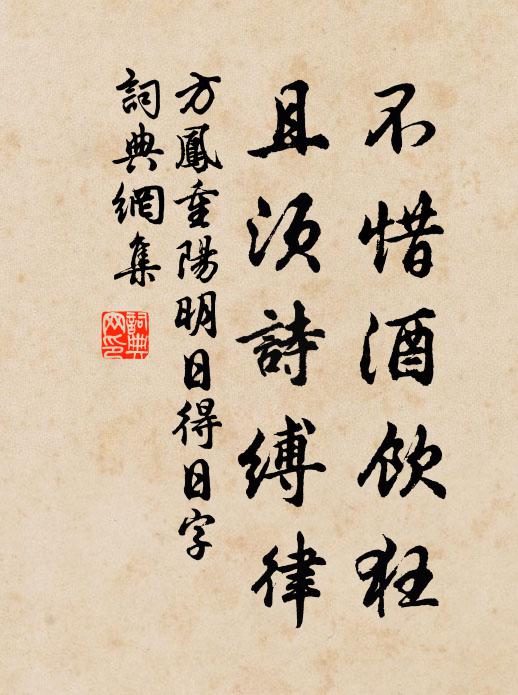 不惜酒飲狂
且須詩縛律
方鳳重陽明日得日字
詞典網集
詞典網印